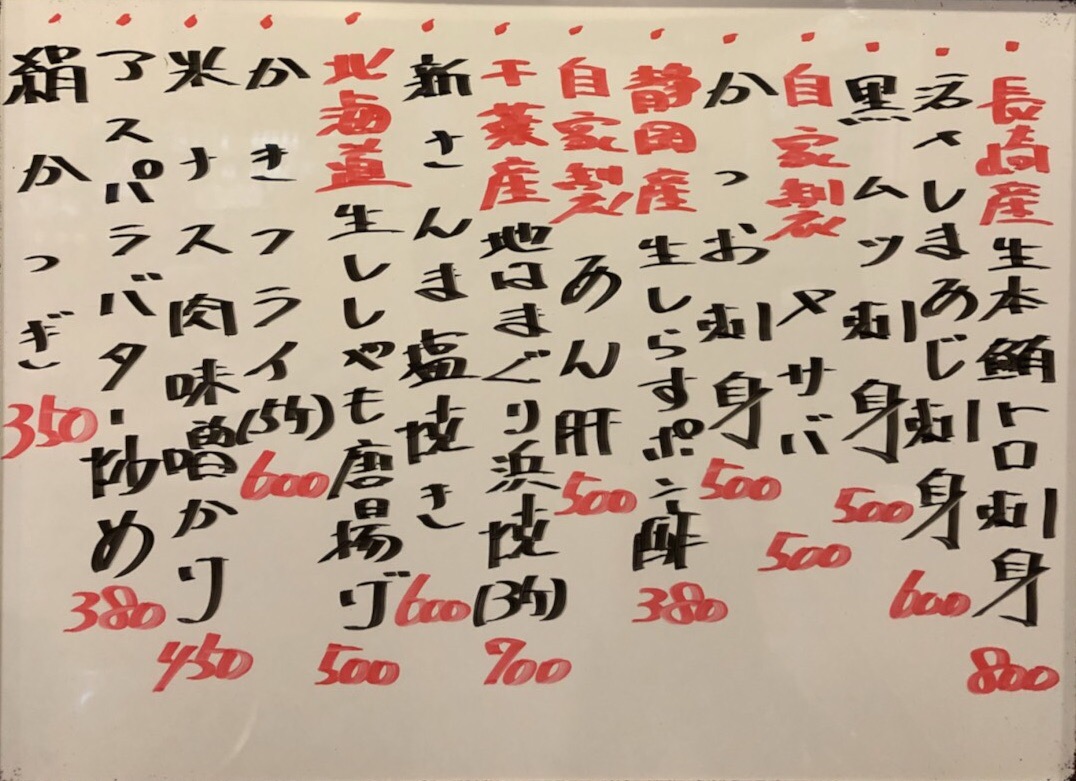 長崎産生本鮪トロ刺身 800
活〆しまあじ刺身 600
黒ムツ刺身 500
自家製〆サバ 500
かつお刺身 500
静岡産生しらすポン酢 380
自家製あん肝 500
千葉産地はまぐり浜焼(3ケ) 700
新さんま塩焼き 600
北海道生ししゃも唐揚げ 500
かきフライ(5ケ) 600
米ナス肉味噌かけ 450
アスパラバター炒め 380
絹かつぎ 350